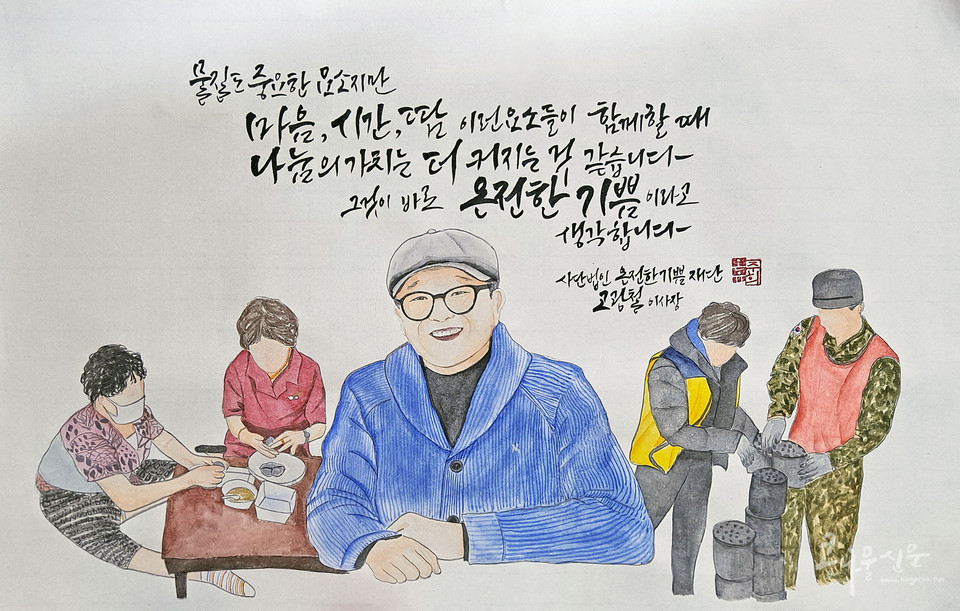 물질도 중요한 요소지만
마음, 시간, 땀 이런요소들이 함께할 때
나눔의 가치는 더 커지는 것 같습니다
그것이 바로 온전한 기쁨이라고
생각합니다
사단법인 온전한기쁨 재단
고광철 이사장
온나물신문